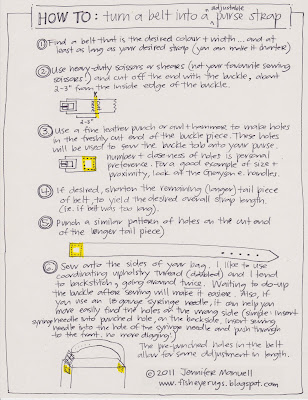 HOW TO: turn a belt into a adjustable purse strap
① Find a belt that is the desired colour + width... and at
least as long as your desired strap (you can make it shorter)
② Use heavy-duty scissors or shears (not your favourite sewing
scissors!) and cut off the end with the buckle, about
2-3" from the inside edge of the buckle.
2-3"
③ Use a fine leather punch or awl + hammer to make holes
in the freshly cut end of the buckle piece. These holes
will be used to sew the buckle tab onto your purse.
number + closeness of holes is personal
preference. For a good example of size +
proximity, look at the Grayson E. handles.
④ If desired, shorten the remaining (larger) tail piece
of belt, to yield the desired overall strap length.
(ie. if belt was too long).
⑤ Punch a similar pattern of holes on the cut end
of the longer tail piece)
⑥ Sew onto the sides of your bag. I like to use
coordinating upholstry thread (doubled) and I tend
to backstitch, going around twice. Waiting to do-up
the buckle after sewing will make it easier. Also, if
you use an 18 gauge syringe needle, it can help you
more easily find the holes on the wrong side (simple: insert
syringe needle into punch hole, on the backside, insert sewing
needle into the hole of the syringe needle and push through
to the front. no more digging!)
The pre-punched holes in the belt
allow for some adjustment in length.
© 2011 Jennifer Manuell
www.fisheyerugs.blogspot.com